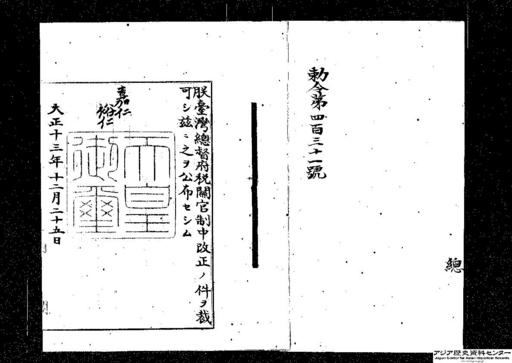 勅令第四百三十一號
總
朕臺灣總督府稅關官制中改正ノ件ヲ裁
可シ玆ニ之ヲ公布セシム
嘉仁
裕仁
天皇
御璽
大正十三年十二月二十五日
アジア歴史資料センター
Japan Center for Asian Historical Records